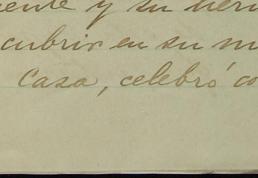 ente y su her
cubrir en su m
casa, celebró co